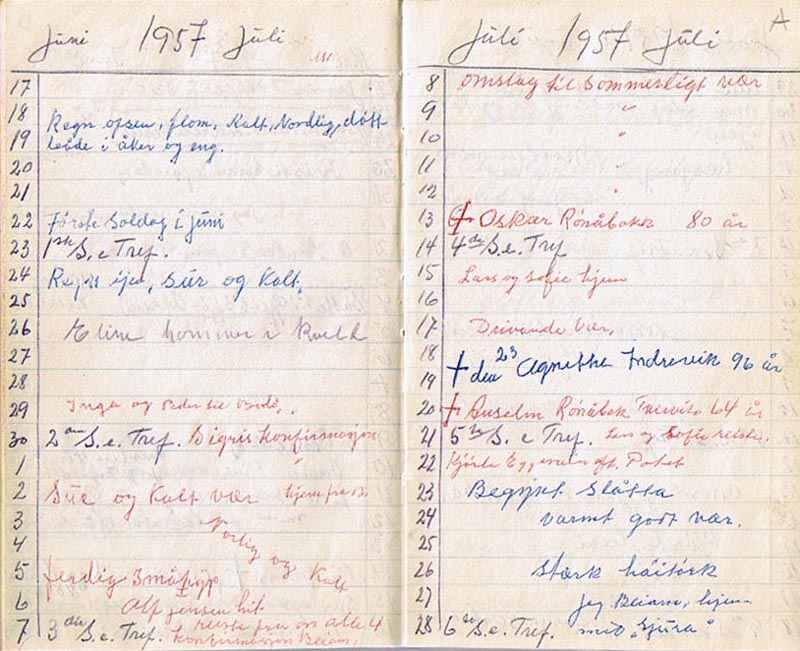 Juni 1957 Juli
17
18 Regn opsen, flom, Kalt, Nordlig, dått
19 leide i åker og eng.
20
21
22 Første Soldag i juni
23 1ste S. e Tref.
24 Regn igen, Sur og Kalt,
25
26 Eline kommer i kveld
27
28
29 Inga og Peder til Bodø.
30 2den S. e. Tref. Sigris konfirmasjon
1
2 Sur og Kalt vær hjem fra
3 Nordlig og Kalt
4
5 ferdig
6 Alf Jensen hit
7 3die S. e. Tref. reiste fra oss alle 4
konfirmasjon Beiarn,
Juli 1957 Juli
A
8 Omslag til Sommerligt vær
9 "
10 "
11 "
12 "
13 † Oskar Rønåbakk 80 år
14 4de S. e. Tref
15 Lars og Sofie hjem
16
17 Drivande Vær,
18
19 † den 23 Agnethe Indrevik 96 år
20 † Anselm Rønåbek Tvervik 64 år
21 5te S. e Tref. Lars og Sofie reiste.
22 Kjørte Potet
23 Begynt Slåtta
24 varmt godt vær.
25
26 stærk håitørk
27 Jeg Beiarn, hjem
28 6te S. e. Tref. med "Sjura"